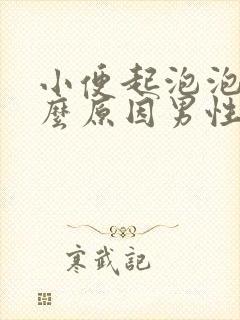 小便起泡泡
麼原因男性
寒武記